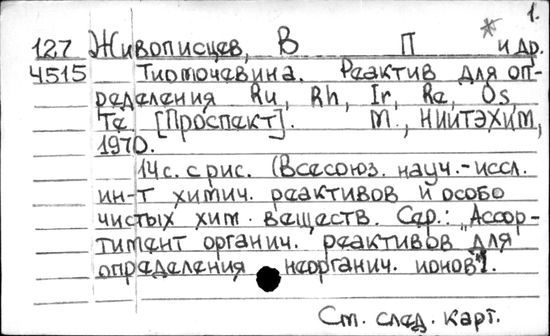 1.
127 Живописцев, В П * и др.
4515 Тиомочевина. Реактив для оп-
ределения Ru, Rh, Ir, Re, Os,
Te [Проспект]. М., НИИТЭХИМ,
1970.
14 с. с рис. (Всесоюз. науч.-иссл.
ин-т химич. реактивов и особо
чистых хим. веществ. Сер.: „Ассор-
тимент органич. реактивов для
определения неорганич. ионов").
См. след. карт.